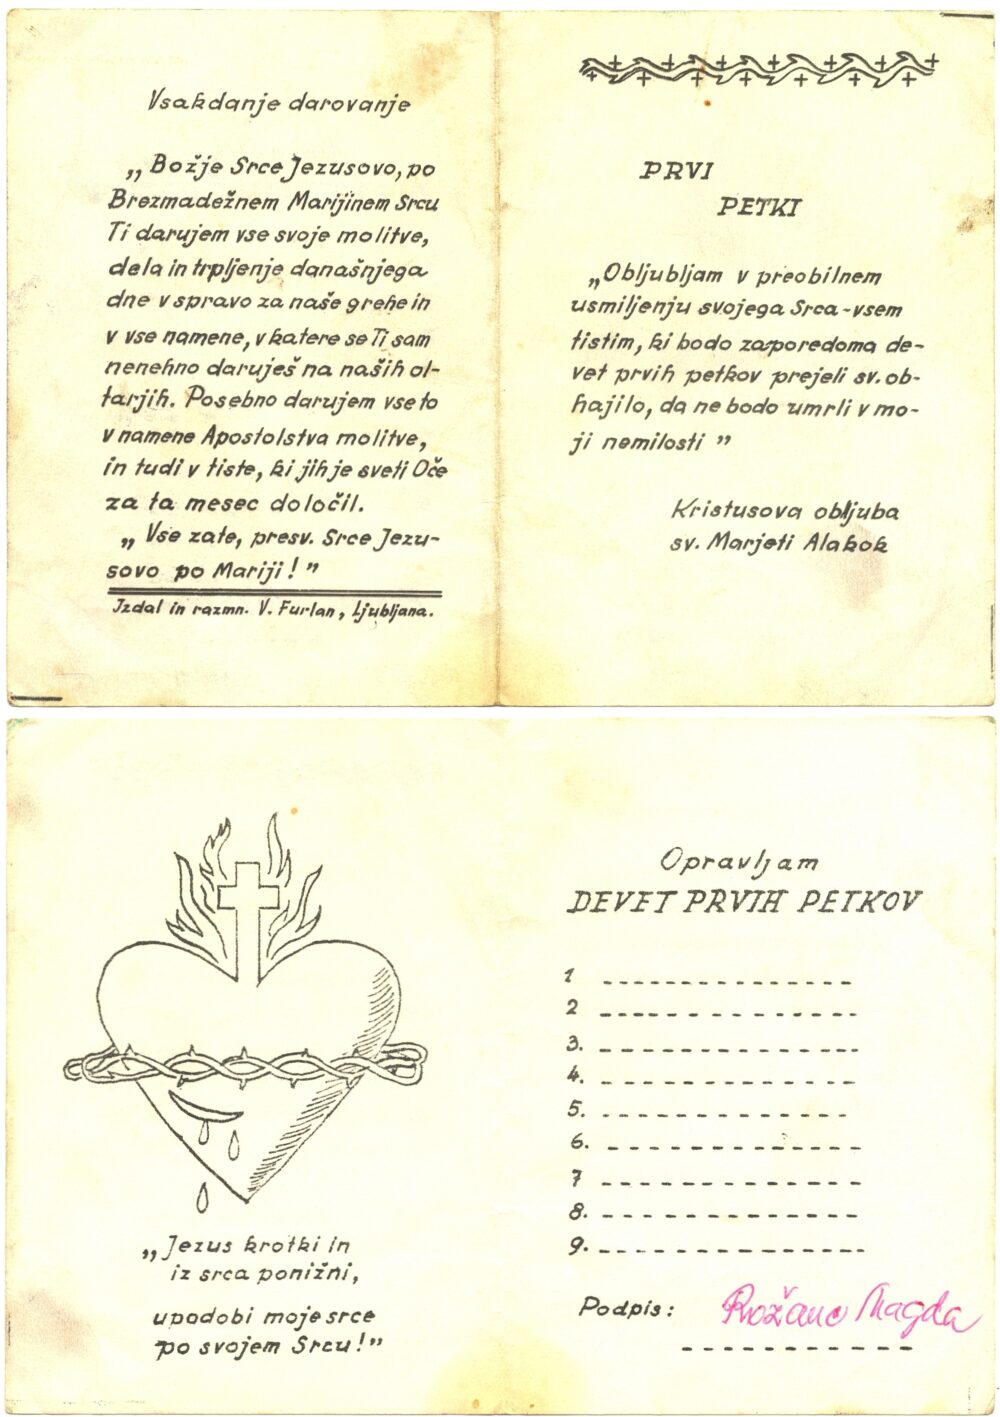 Vsakdanje darovanje
„Božje Srce Jezusovo, po
Brezmadežnem Marijinem Srcu
Ti darujem vse svoje molitve,
dela in trpljenje današnjega
dne v spravo za naše grehe in
v vse namene, v katere se Ti sam
nenehno daruješ na naših ol-
tarjih. Posebno darujem vse to
v namene Apostolstva molitve,
in tudi v tiste, ki jih je sveti Oče
za ta mesec določil.
„Vse zate, presv. Srce Jezu-
sovo po Mariji!”
Izdal in razmn. V. Furlan, Ljubljana.
PRVI
PETKI
„Obljubljam v preobilnem
usmiljenju svojega Srca - vsem
tistim, ki bodo zaporedoma de-
vet prvih petkov prejeli sv. ob-
hajilo, da ne bodo umrli v mo-
ji nemilosti”
Kristusova obljuba
sv. Marjeti Alakok
„Jezus krotki in
iz srca ponižni,
upodobi moje srce
po svojem Srcu!”
Opravljam
DEVET PRVIH PETKOV
1
2
3.
4.
5.
6.
7
8.
9.
Podpis: Rožanc Magda